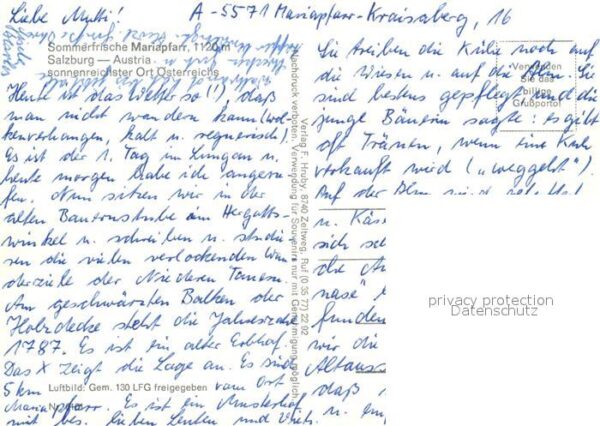 Liebe Mutti!
A-5571 Mariapfarr-Kraischberg, 16
Sommerfrische Mariapfarr, 1120 m
Salzburg — Austria
sonnenreichster Ort Österreichs
Heute ist das Wetter so (!), daß
man nicht wandern kann (wol-
kenverhangen, kalt u. regnerisch).
Es ist der 1. Tag im Lungau u.
heute morgen habe ich angeru-
fen. Nun sitzen wir in der
alten Bauernstube im Hergotts-
winkel u. schreiben u. studie
ren die vielen verlockenden Wan
derziele der Niederen Tauern.
Am geschwärzten Balken der
Holzdecke steht die Jahreszahl
1787. Es ist ein alter Erbhof.
Das X zeigt die Lage an. Es sind
5 km vom Ort
Luftbild: Gem. 130 LFG freigegeben
Mariapfarr. Es ist ein Musterhof
mit bes. lieben Leuten und
Nachdruck verboten. Verwendung für Souvenirs nur mit Genehmigung möglich
Verlag F. Hruby, 8740 Zeltweg, Ruf (0 35 77) 22 92
Sie treiben die Kühe noch auf
die Wiesen u. auf die Alm. Sie
sind bestens gepflegt und die
junge Bäuerin sagte: es gibt
oft Tränen, wenn eine Kuh
verkauft wird („weggeht").
Auf der Alm
Verwenden
Sie das
billige
Grußporto!
u. Käs
sich se
die A
nase"
funden
wir die
Altauss
daß
u. ein
privacy protection
Datenschutz